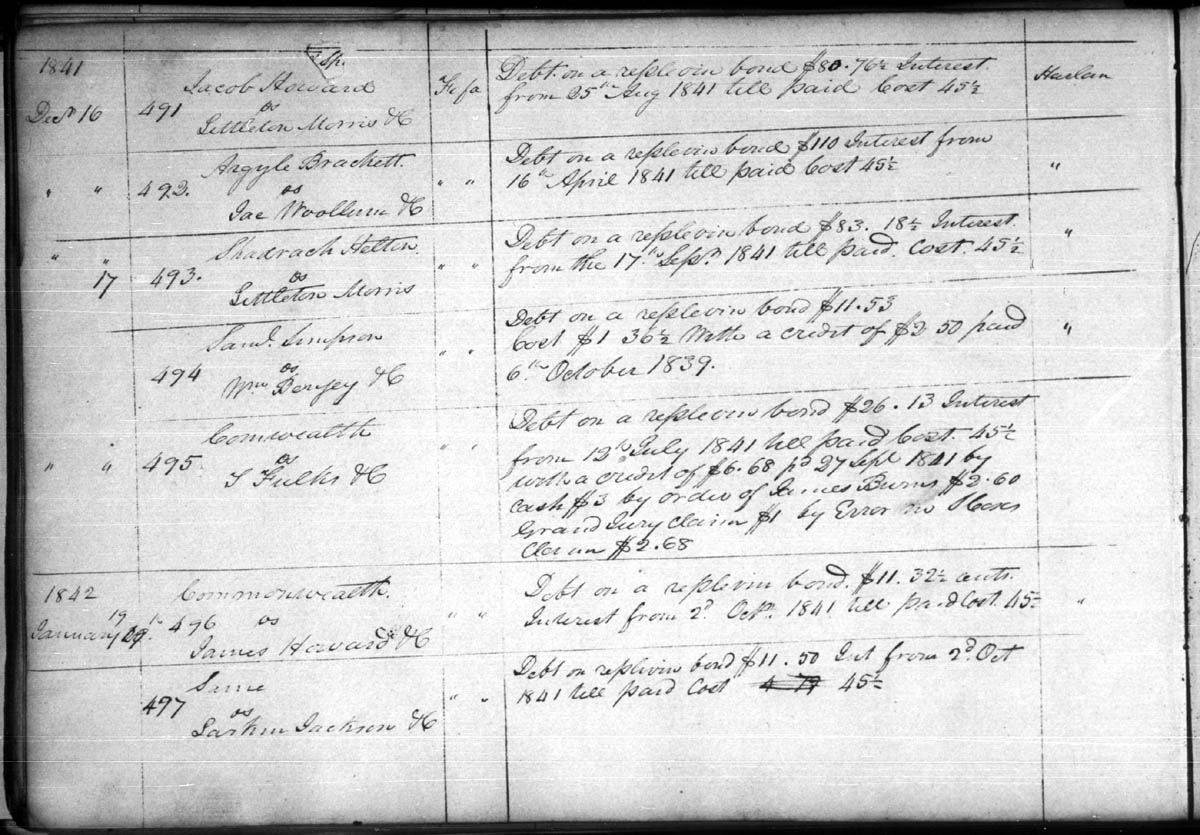 1841
Jacob Howard
Decr 16 491 vs Fi fa
Littleton Morris &C
Debt on a replevin bond $80.76½ Interest
from 25th Aug 1841 till paid Cost 45½
Harlan
Argyle Brackett
" " 492. vs " "
Jac Woollum &C
Debt on a replevin bond $110 Interest from
16th April 1841 till paid Cost 45½
"
Shadrach Helton
" " 17 493. vs " "
Littleton Morris
Debt on a replevin bond $83. 18½ Interest
from the 17th Sepr 1841 till paid. Cost. 45½
"
Saml. Simpson
494 vs " "
Wm &C
Debt on a replevin bond $11.53
Cost $1 36½ With a credit of $2 50 paid
6th October 1839.
"
Comwealth
" " 495. vs " "
S Fulks &C
Debt on a replevin bond $26.13 Interest
from 12th July 1841 till paid Cost. 45½
with a credit of $6.68 pd 27 Sept 1841 by
Cash $3 by order of James Burns $2.60
Grand Jury Claim $1 by Error in
Claim $2.68
1842
Commonwealth.
January 19 496 vs " "
James Howard &C
Debt on a replevin bond. $11.32½ cents.
Interest from 2d. Octr. 1841 till paid Cost. 45½
"
Same
497 vs " "
Larkin Jackson &C
Debt on replevin bond $11.50 Int from 2d. Oct
1841 till paid Cost 45½